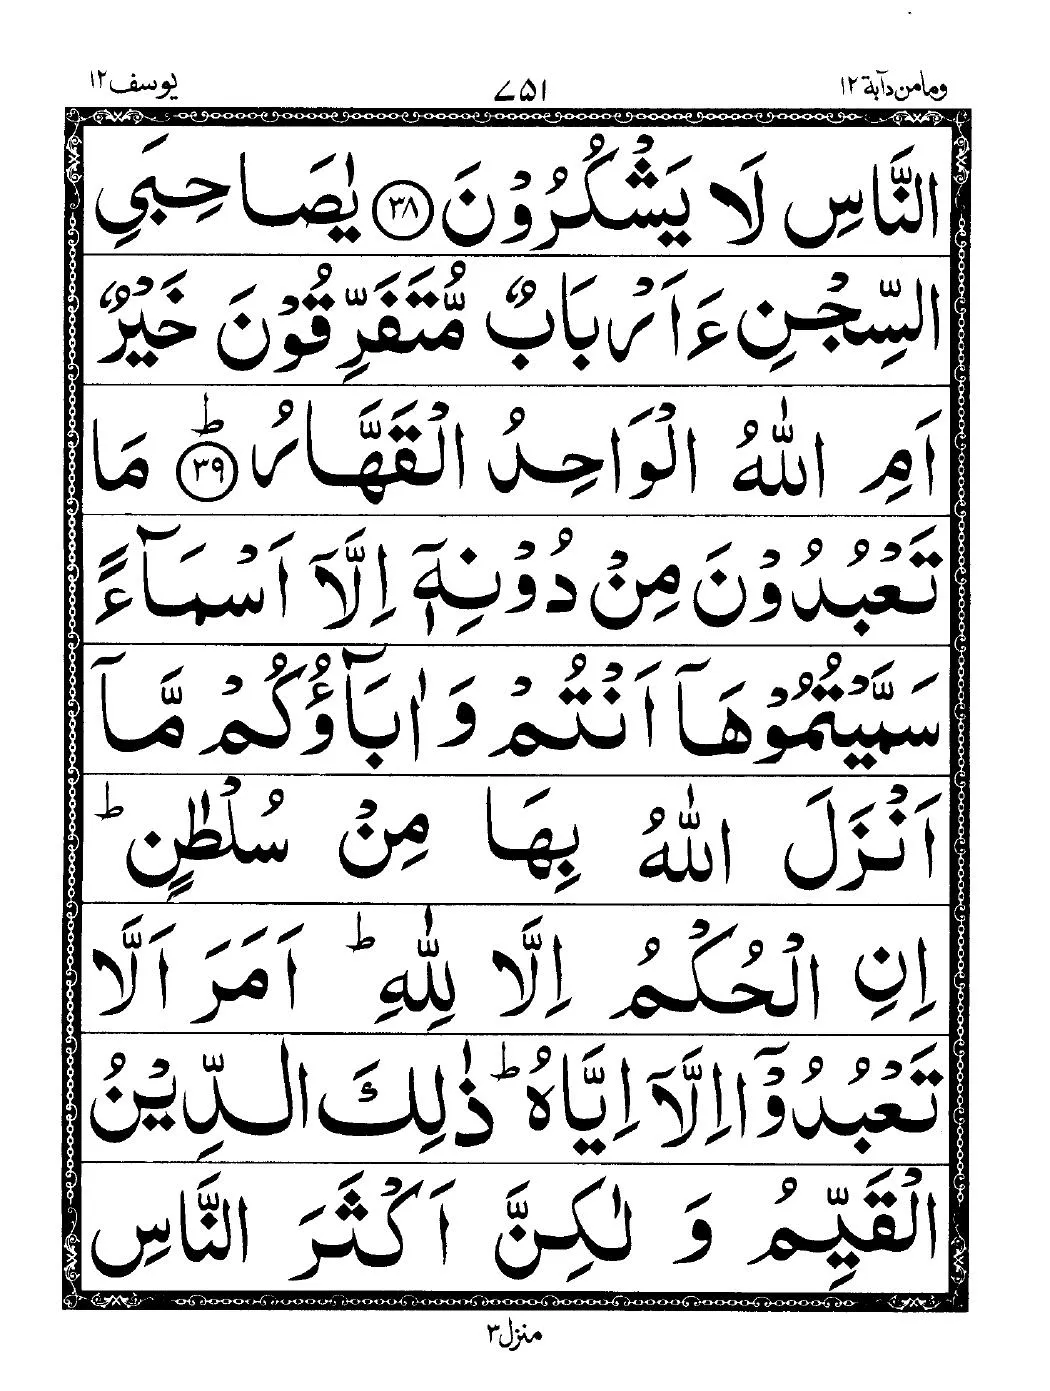 وما من دآبة ١٢
٧٥١
يوسف ١٢
النَّاسِ لَا يَشْكُرُوْنَ ٣٨ يٰصَاحِبَيِ
السِّجْنِ ءَاَرْبَابٌ مُّتَفَرِّقُوْنَ خَيْرٌ
اَمِ اللّٰهُ الْوَاحِدُ الْقَهَّارُ ٣٩ ؕ مَا
تَعْبُدُوْنَ مِنْ دُوْنِهٖۤ اِلَّاۤ اَسْمَآءً
سَمَّيْتُمُوْهَاۤ اَنْتُمْ وَ اٰبَآؤُكُمْ مَّاۤ
اَنْزَلَ اللّٰهُ بِهَا مِنْ سُلْطٰنٍ ؕ
اِنِ الْحُكْمُ اِلَّا لِلّٰهِ ؕ اَمَرَ اَلَّا
تَعْبُدُوْۤا اِلَّاۤ اِيَّاهُ ؕ ذٰلِكَ الدِّيْنُ
الْقَيِّمُ وَ لٰكِنَّ اَكْثَرَ النَّاسِ
منزل ٣